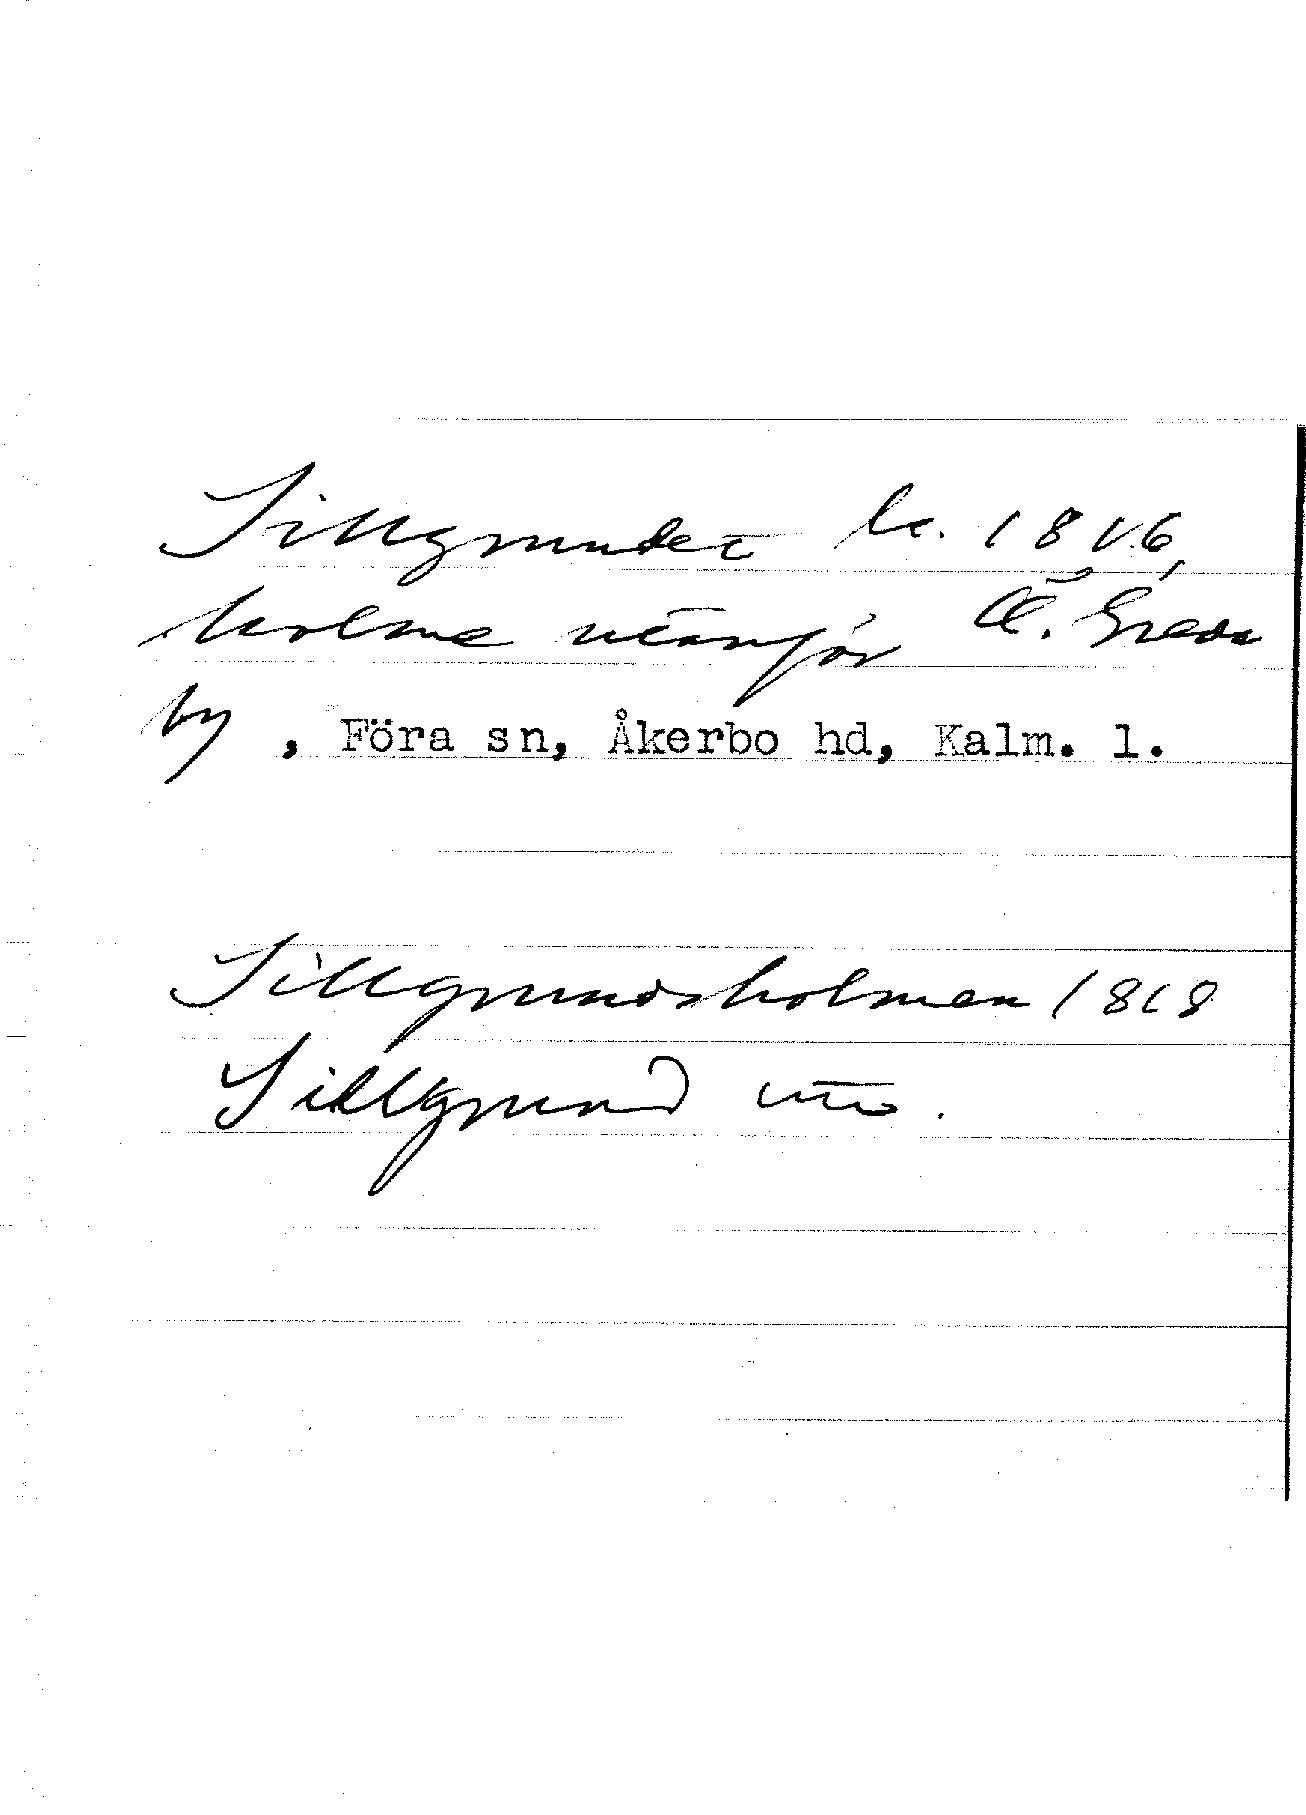 Sillgrundet lr. 1846,
holme utanför Ö. Greda
by, Föra sn, Åkerbo hd, Kalm. l.
Sillgrundsholmen 1818
Sillgrund utO.